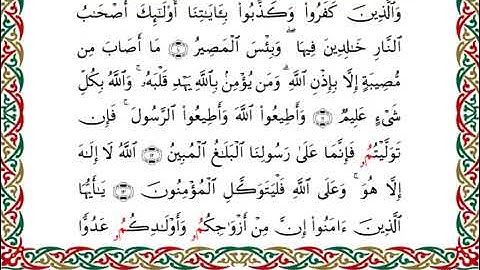 وَٱلَّذِينَ كَفَرُوا۟ وَكَذَّبُوا۟ بِـَٔايَـٰتِنَآ أُو۟لَـٰٓئِكَ أَصْحَـٰبُ
ٱلنَّارِ خَـٰلِدِينَ فِيهَا ۖ وَبِئْسَ ٱلْمَصِيرُ ۝١٠ مَآ أَصَابَ مِن
مُّصِيبَةٍ إِلَّا بِإِذْنِ ٱللَّهِ ۗ وَمَن يُؤْمِنۢ بِٱللَّهِ يَهْدِ قَلْبَهُۥ ۚ وَٱللَّهُ بِكُلِّ
شَىْءٍ عَلِيمٌ ۝١١ وَأَطِيعُوا۟ ٱللَّهَ وَأَطِيعُوا۟ ٱلرَّسُولَ ۚ فَإِن
تَوَلَّيْتُمُۥ فَإِنَّمَا عَلَىٰ رَسُولِنَا ٱلْبَلَـٰغُ ٱلْمُبِينُ ۝١٢ ٱللَّهُ لَآ إِلَـٰهَ
إِلَّا هُوَ ۚ وَعَلَى ٱللَّهِ فَلْيَتَوَكَّلِ ٱلْمُؤْمِنُونَ ۝١٣ يَـٰٓأَيُّهَا
ٱلَّذِينَ ءَامَنُوٓا۟ إِنَّ مِنْ أَزْوَٰجِكُمُۥ وَأَوْلَـٰدِكُمُۥ عَدُوًّا